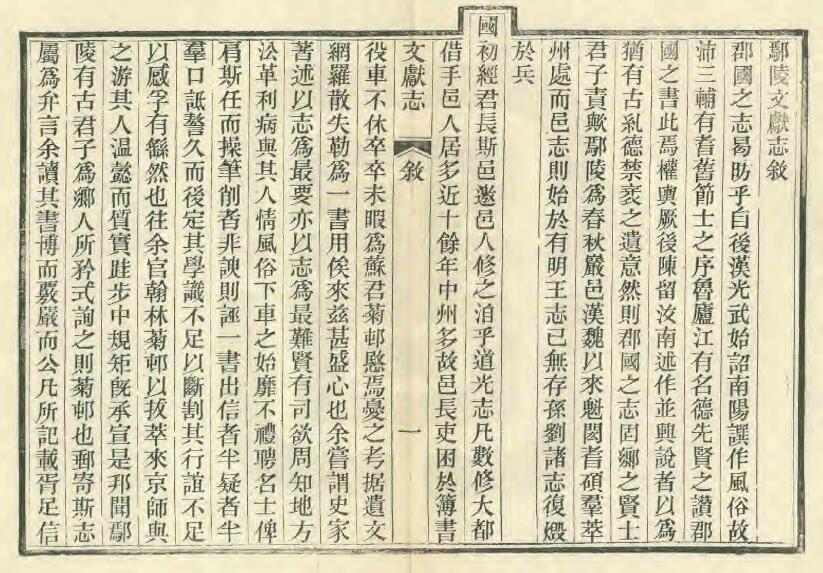 鄢陵文獻志敘
郡國之志昜昉乎自後漢光武始詔南陽譔作風俗故
沛三輔有耆舊節士之序魯廬江有名德先賢之讚郡
國之書此焉權輿厥後陳留汝南述作並興說者以爲
猶有古糺德禁衺之遺意然則郡國之志固鄉之賢士
君子責歟鄢陵爲春秋嚴邑漢魏以來魁閎耆碩羣萃
州處而邑志則始於有明王志已無存孫劉諸志復燬
於兵
國初經君長斯邑邀邑人修之洎乎道光志凡數修大都
借手邑人居多近十餘年中州多故邑長吏困於簿書
文獻志 敘 一
役車不休卒卒未暇爲蘇君菊邨慇焉憂之考据遺文
網羅散失勒爲一書用俟來兹甚盛心也余嘗謂史家
著述以志爲最要亦以志爲最難賢有司欲周知地方
㳂革利病與其人情風俗下車之始靡不禮聘名士俾
肩斯任而操筆削者非諛則誣一書出信者半疑者半
羣口詆謷久而後定其學識不足以斷割其行誼不足
以感孚有繇然也往余官翰林菊邨以拔萃來京師與
之游其人溫懿而質實跬步中規矩旣承宣是邦聞鄢
陵有古君子爲鄉人所矜式詢之則菊邨也郵寄斯志
屬爲弁言余讀其書博而覈嚴而公凡所記載胥足信